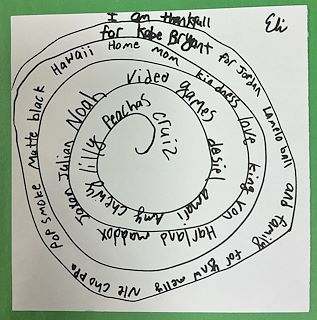 Eli
I am thankfull
for Kobe Bryant for Jordan Lamelo ball and family for ynw melly Nle choppa Pop smoke Matte black Hawaii Home mom kindness love king von Harland maddox Jalan Julian Noah video games desiel amali Amy chewily lilly Peachas cruiz